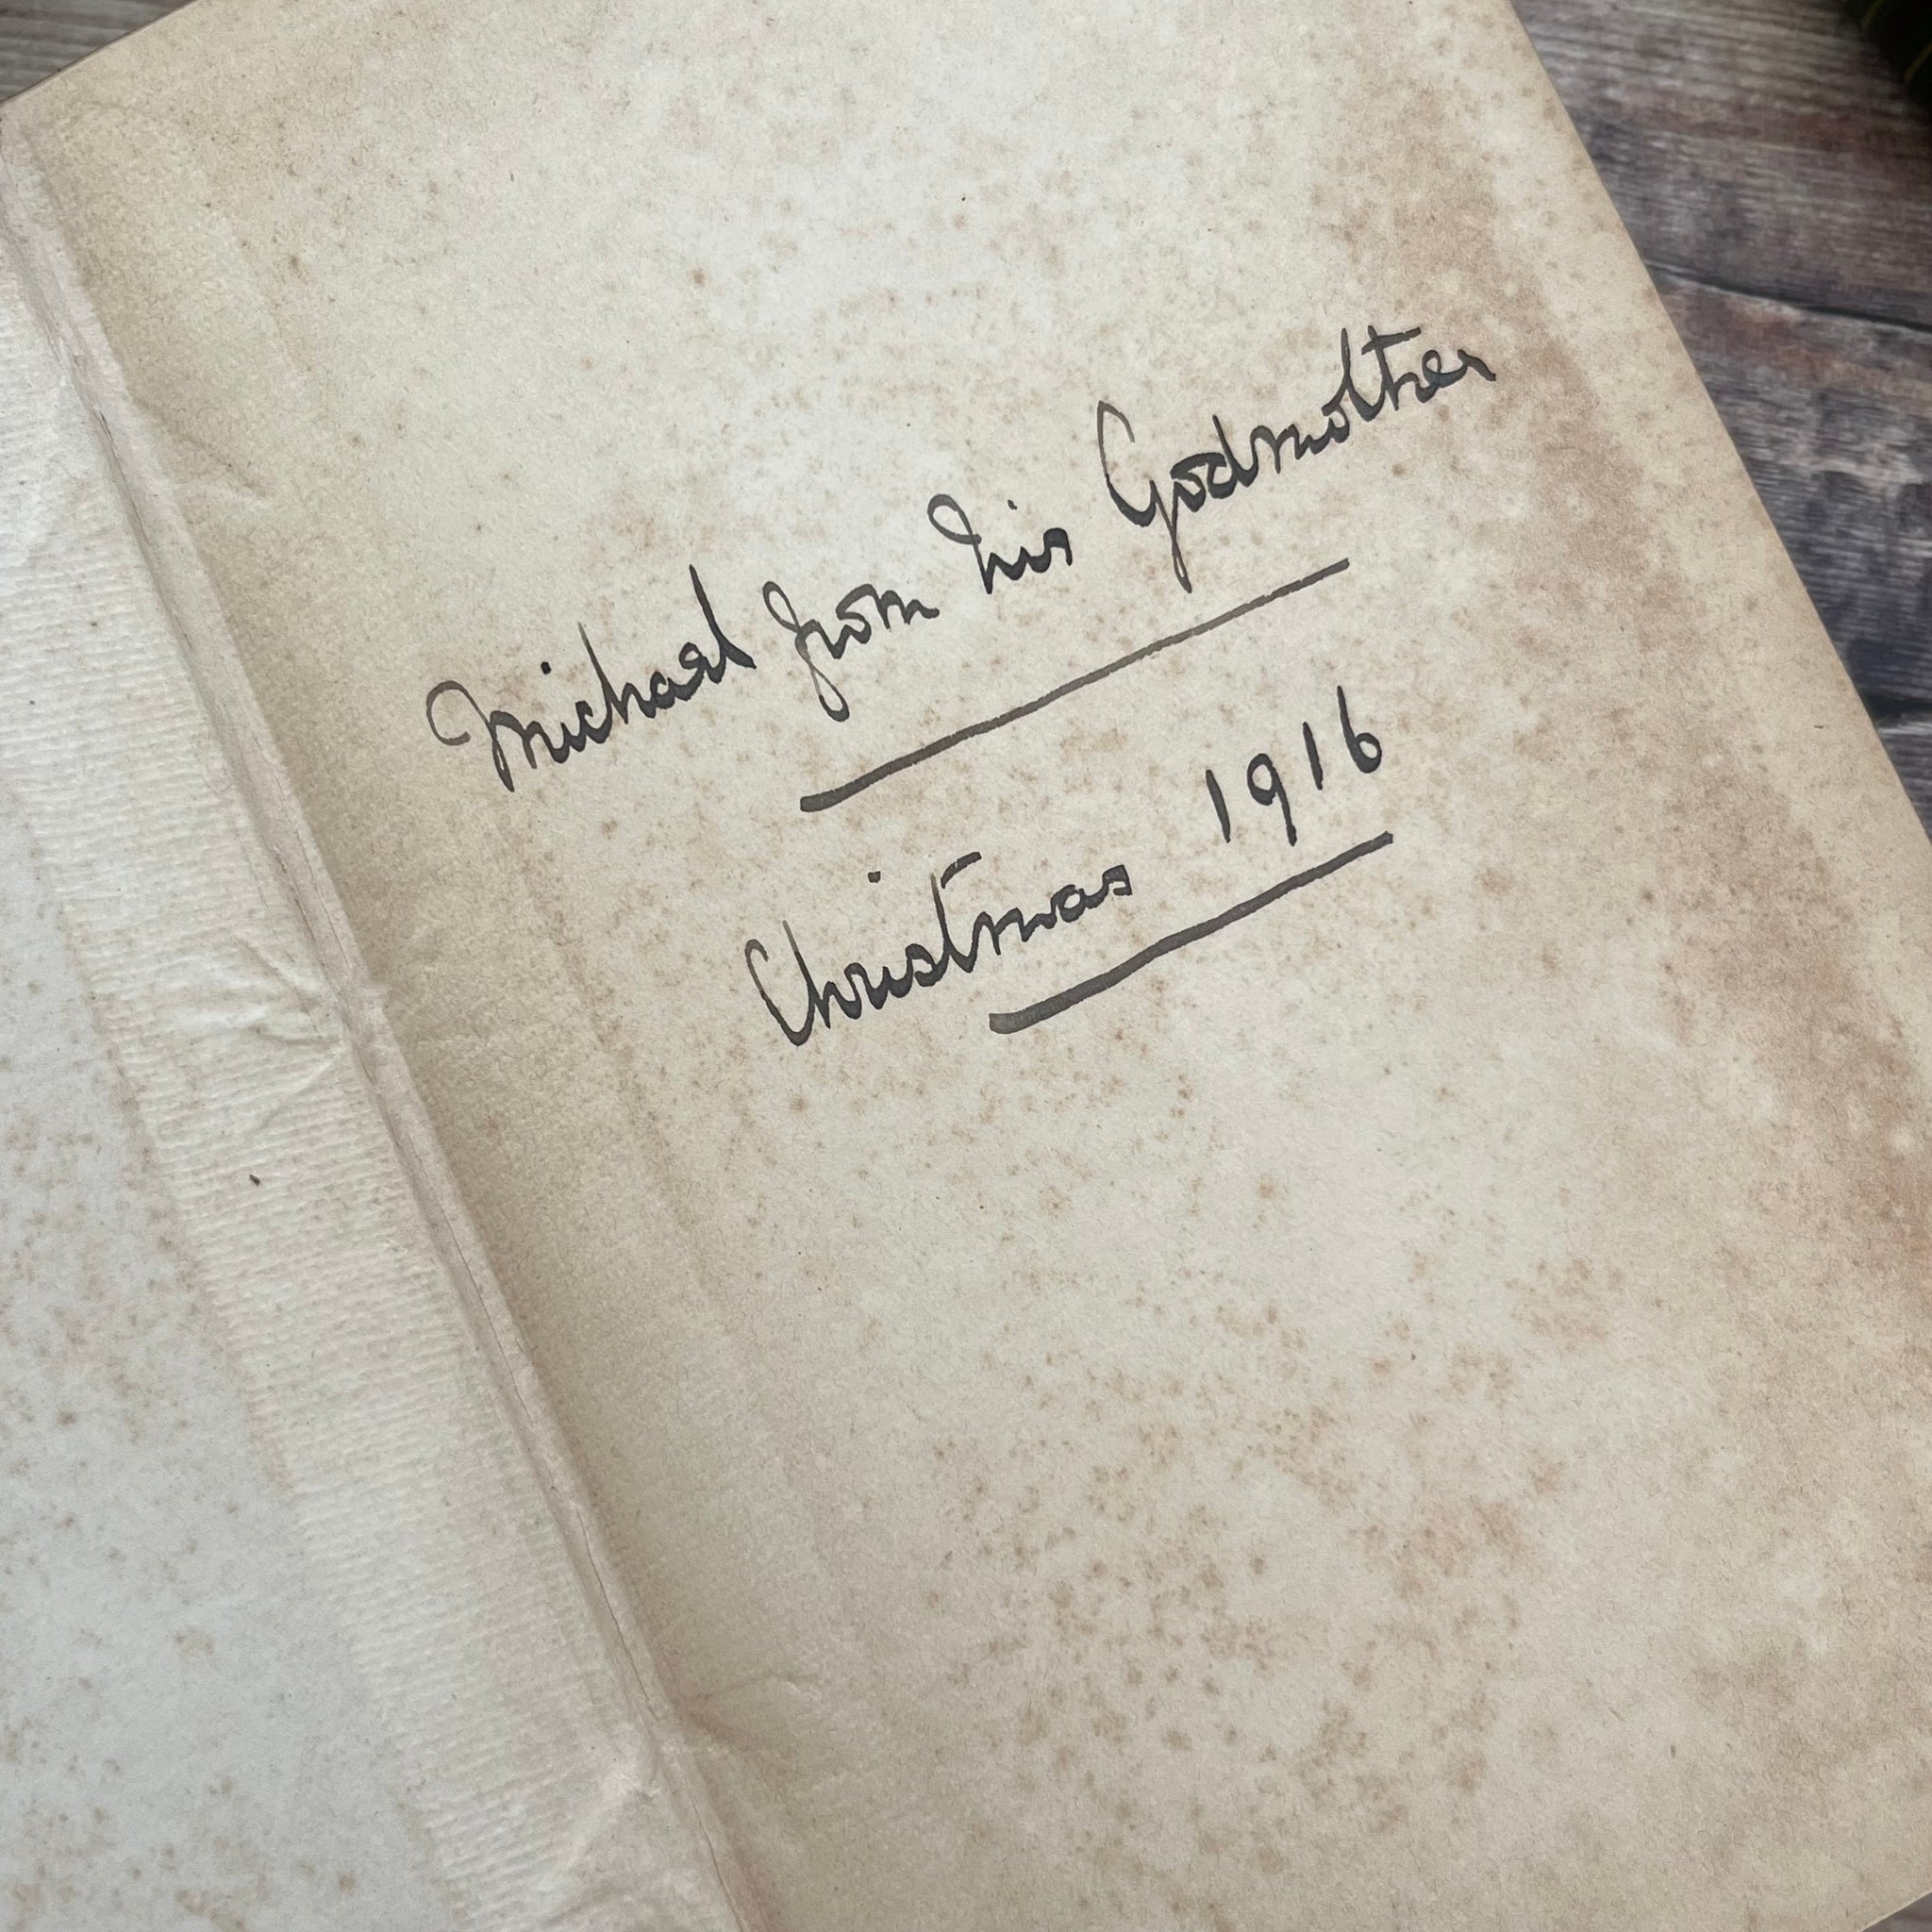 Michael from his Godmother
Christmas 1916